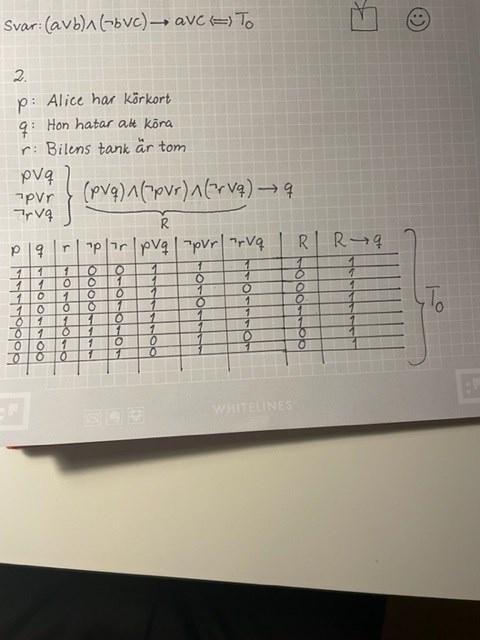 Svar: (a∨b)∧(¬b∨c) → a∨c ⟺ T₀
2.
p: Alice har körkort
q: Hon hatar att köra
r: Bilens tank är tom
p∨q
¬p∨r
¬r∨q
(p∨q)∧(¬p∨r)∧(¬r∨q) → q
R
p q r ¬p ¬r p∨q ¬p∨r ¬r∨q R R→q
1 1 1 0 0 1 1 1 1 1
1 1 0 0 1 1 0 1 0 1
1 0 1 0 0 1 1 0 0 1
1 0 0 0 1 1 0 1 0 1
0 1 1 1 0 1 1 1 1 1
0 1 0 1 1 1 1 1 1 1
0 0 1 1 0 0 1 0 0 1
0 0 0 1 1 0 1 1 0 1
T₀
WHITELINES